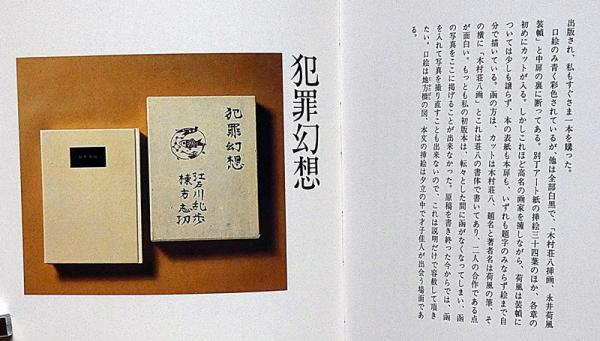 出版され、私もすぐさま一本を購った。
口絵のみ青く彩色されているが、他は全部白黒で、「木村荘八挿画、永井荷風
装幀」と中扉の裏に断ってある。別丁アート紙の挿絵三十四葉のほか、各章の
初めにカットが入る。しかしこれほど高名の画家を擁しながら、荷風は装幀に
ついては少しも譲らず、本の表紙も本扉も、いずれも題字のみならず絵まで自
分で描いている。函の方は、カットは木村荘八、題名と著者名は荷風の筆、そ
の横に「木村荘八画」とこれは荘八の書体で書いてあり、二人の合作である点
が面白い。もっとも私の初版本は、転々とした間に函がなくなってしまい、函
の写真をここに掲げることが出来なかった。原稿を書き終った今からでは、函
を入れて写真を撮り直すことも出来ないので、これは説明だけで容赦して頂き
たい。口絵は地方橋の図、本文の挿絵は夕立の中で才子佳人が出会う場面であ
る。
犯罪幻想
犯罪幻想
江戸川乱歩
棟方志功